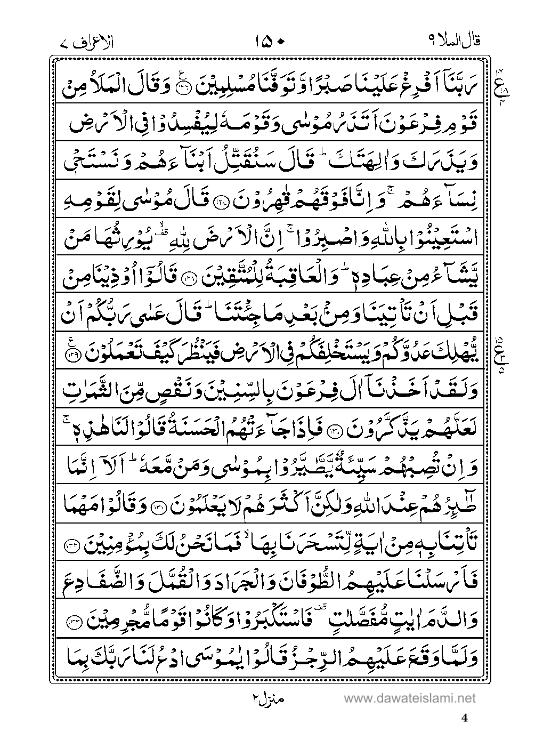 قال الملا ٩ ١٥٠ الاعراف ٧
رَبَّنَاۤ اَفۡرِغۡ عَلَيۡنَا صَبۡرًا وَّتَوَفَّنَا مُسۡلِمِيۡنَ ۝ وَقَالَ الۡمَلَاُ مِنۡ
قَوۡمِ فِرۡعَوۡنَ اَتَذَرُ مُوۡسٰى وَقَوۡمَهٗ لِيُفۡسِدُوۡا فِى الۡاَرۡضِ
وَيَذَرَكَ وَاٰلِهَتَكَ ؕ قَالَ سَنُقَتِّلُ اَبۡنَآءَهُمۡ وَنَسۡتَحۡىٖ
نِسَآءَهُمۡ ۚ وَاِنَّا فَوۡقَهُمۡ قٰهِرُوۡنَ ۝ قَالَ مُوۡسٰى لِقَوۡمِهِ
اسۡتَعِيۡنُوۡا بِاللّٰهِ وَاصۡبِرُوۡا ۚ اِنَّ الۡاَرۡضَ لِلّٰهِ ۙ يُوۡرِثُهَا مَنۡ
يَّشَآءُ مِنۡ عِبَادِهٖ ؕ وَالۡعَاقِبَةُ لِلۡمُتَّقِيۡنَ ۝ قَالُوۡۤا اُوۡذِيۡنَا مِنۡ
قَبۡلِ اَنۡ تَاۡتِيَنَا وَمِنۡۢ بَعۡدِ مَا جِئۡتَنَا ؕ قَالَ عَسٰى رَبُّكُمۡ اَنۡ
يُّهۡلِكَ عَدُوَّكُمۡ وَيَسۡتَخۡلِفَكُمۡ فِى الۡاَرۡضِ فَيَنۡظُرَ كَيۡفَ تَعۡمَلُوۡنَ ۝
وَلَقَدۡ اَخَذۡنَاۤ اٰلَ فِرۡعَوۡنَ بِالسِّنِيۡنَ وَنَقۡصٍ مِّنَ الثَّمَرٰتِ
لَعَلَّهُمۡ يَذَّكَّرُوۡنَ ۝ فَاِذَا جَآءَتۡهُمُ الۡحَسَنَةُ قَالُوۡا لَنَا هٰذِهٖ ۚ
وَاِنۡ تُصِبۡهُمۡ سَيِّئَةٌ يَّطَّيَّرُوۡا بِمُوۡسٰى وَمَنۡ مَّعَهٗ ؕ اَلَاۤ اِنَّمَا
طٰٓئِرُهُمۡ عِنۡدَ اللّٰهِ وَلٰكِنَّ اَكۡثَرَهُمۡ لَا يَعۡلَمُوۡنَ ۝ وَقَالُوۡا مَهۡمَا
تَاۡتِنَا بِهٖ مِنۡ اٰيَةٍ لِّتَسۡحَرَنَا بِهَا ۙ فَمَا نَحۡنُ لَكَ بِمُؤۡمِنِيۡنَ ۝
فَاَرۡسَلۡنَا عَلَيۡهِمُ الطُّوۡفَانَ وَالۡجَرَادَ وَالۡقُمَّلَ وَالضَّفَادِعَ
وَالدَّمَ اٰيٰتٍ مُّفَصَّلٰتٍ ۟ فَاسۡتَكۡبَرُوۡا وَكَانُوۡا قَوۡمًا مُّجۡرِمِيۡنَ ۝
وَلَمَّا وَقَعَ عَلَيۡهِمُ الرِّجۡزُ قَالُوۡا يٰمُوۡسَى ادۡعُ لَنَا رَبَّكَ بِمَا
منزل ٢
www.dawateislami.net
4